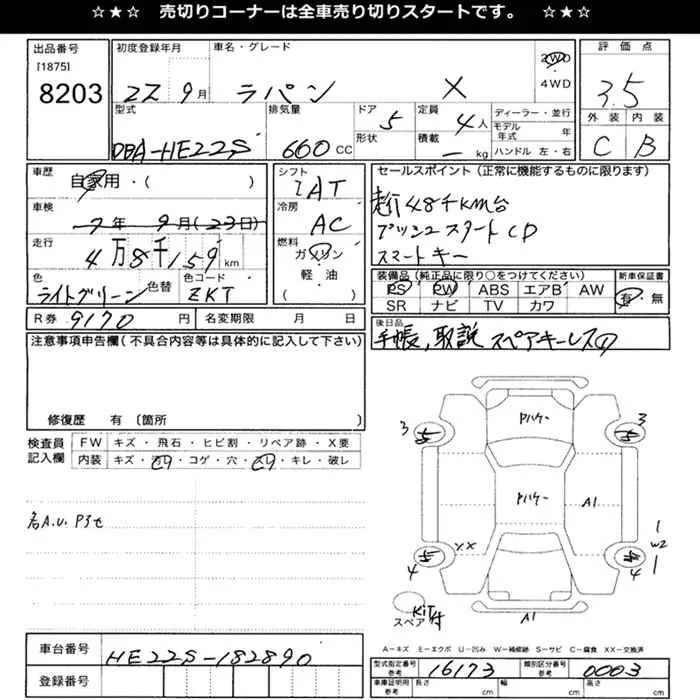 ☆★☆ 売切りコーナーは全車売り切りスタートです。 ☆★☆
出品番号
[1875]
8203
初度登録年月
22 9月
車名・グレード
ラパン X
2WD
4WD
評価点
3.5
外装 内装
C B
型式
DBA-HE22S
排気量
660 CC
ドア
5
形状
定員
4人
積載
kg
ディーラー・並行
モデル年式 年
ハンドル 左・右
車歴
自家用・( )
車検
7年 9月(23日)
走行
4万8千159km
色
ライトグリーン
色替
色コード
ZKT
シフト
IAT
冷房
AC
燃料
ガソリン
軽・油
( )
セールスポイント(正常に機能するものに限ります)
走行48千km台
プッシュスタート CD
スマートキー
装備品(純正品に限り○をつけてください)
PS PW ABS エアB AW
SR ナビ TV カワ
新車保証書
有・無
R券 9170円
名変期限 月 日
後日品
手帳、取説 スペアキーレス①
注意事項申告欄(不具合内容等は具体的に記入して下さい)
修復歴 有〔箇所 〕
検査員記入欄
FW キズ・飛石・ヒビ割・リペア跡・X要
内装 キズ・汚れ・コゲ・穴・スレ・キレ・破レ
Pハケー
3 5
5 3
Pハケー
A1
XX
4 5
5 4
W2
スペア
Kit付
A1
A-キズ E-エクボ U-凹み W-補修跡 S-サビ C-腐食 XX-交換済
車台番号
HE22S-182890
登録番号
型式指定番号 参考
16173
類別区分番号 参考
0003
車庫証明用 参考
長さ cm
幅 cm
高さ cm